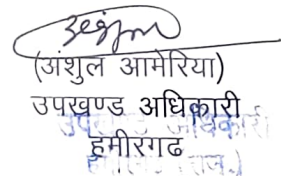 (अंशुल आमेरिया)
उपखण्ड अधिकारी
हमीरगढ